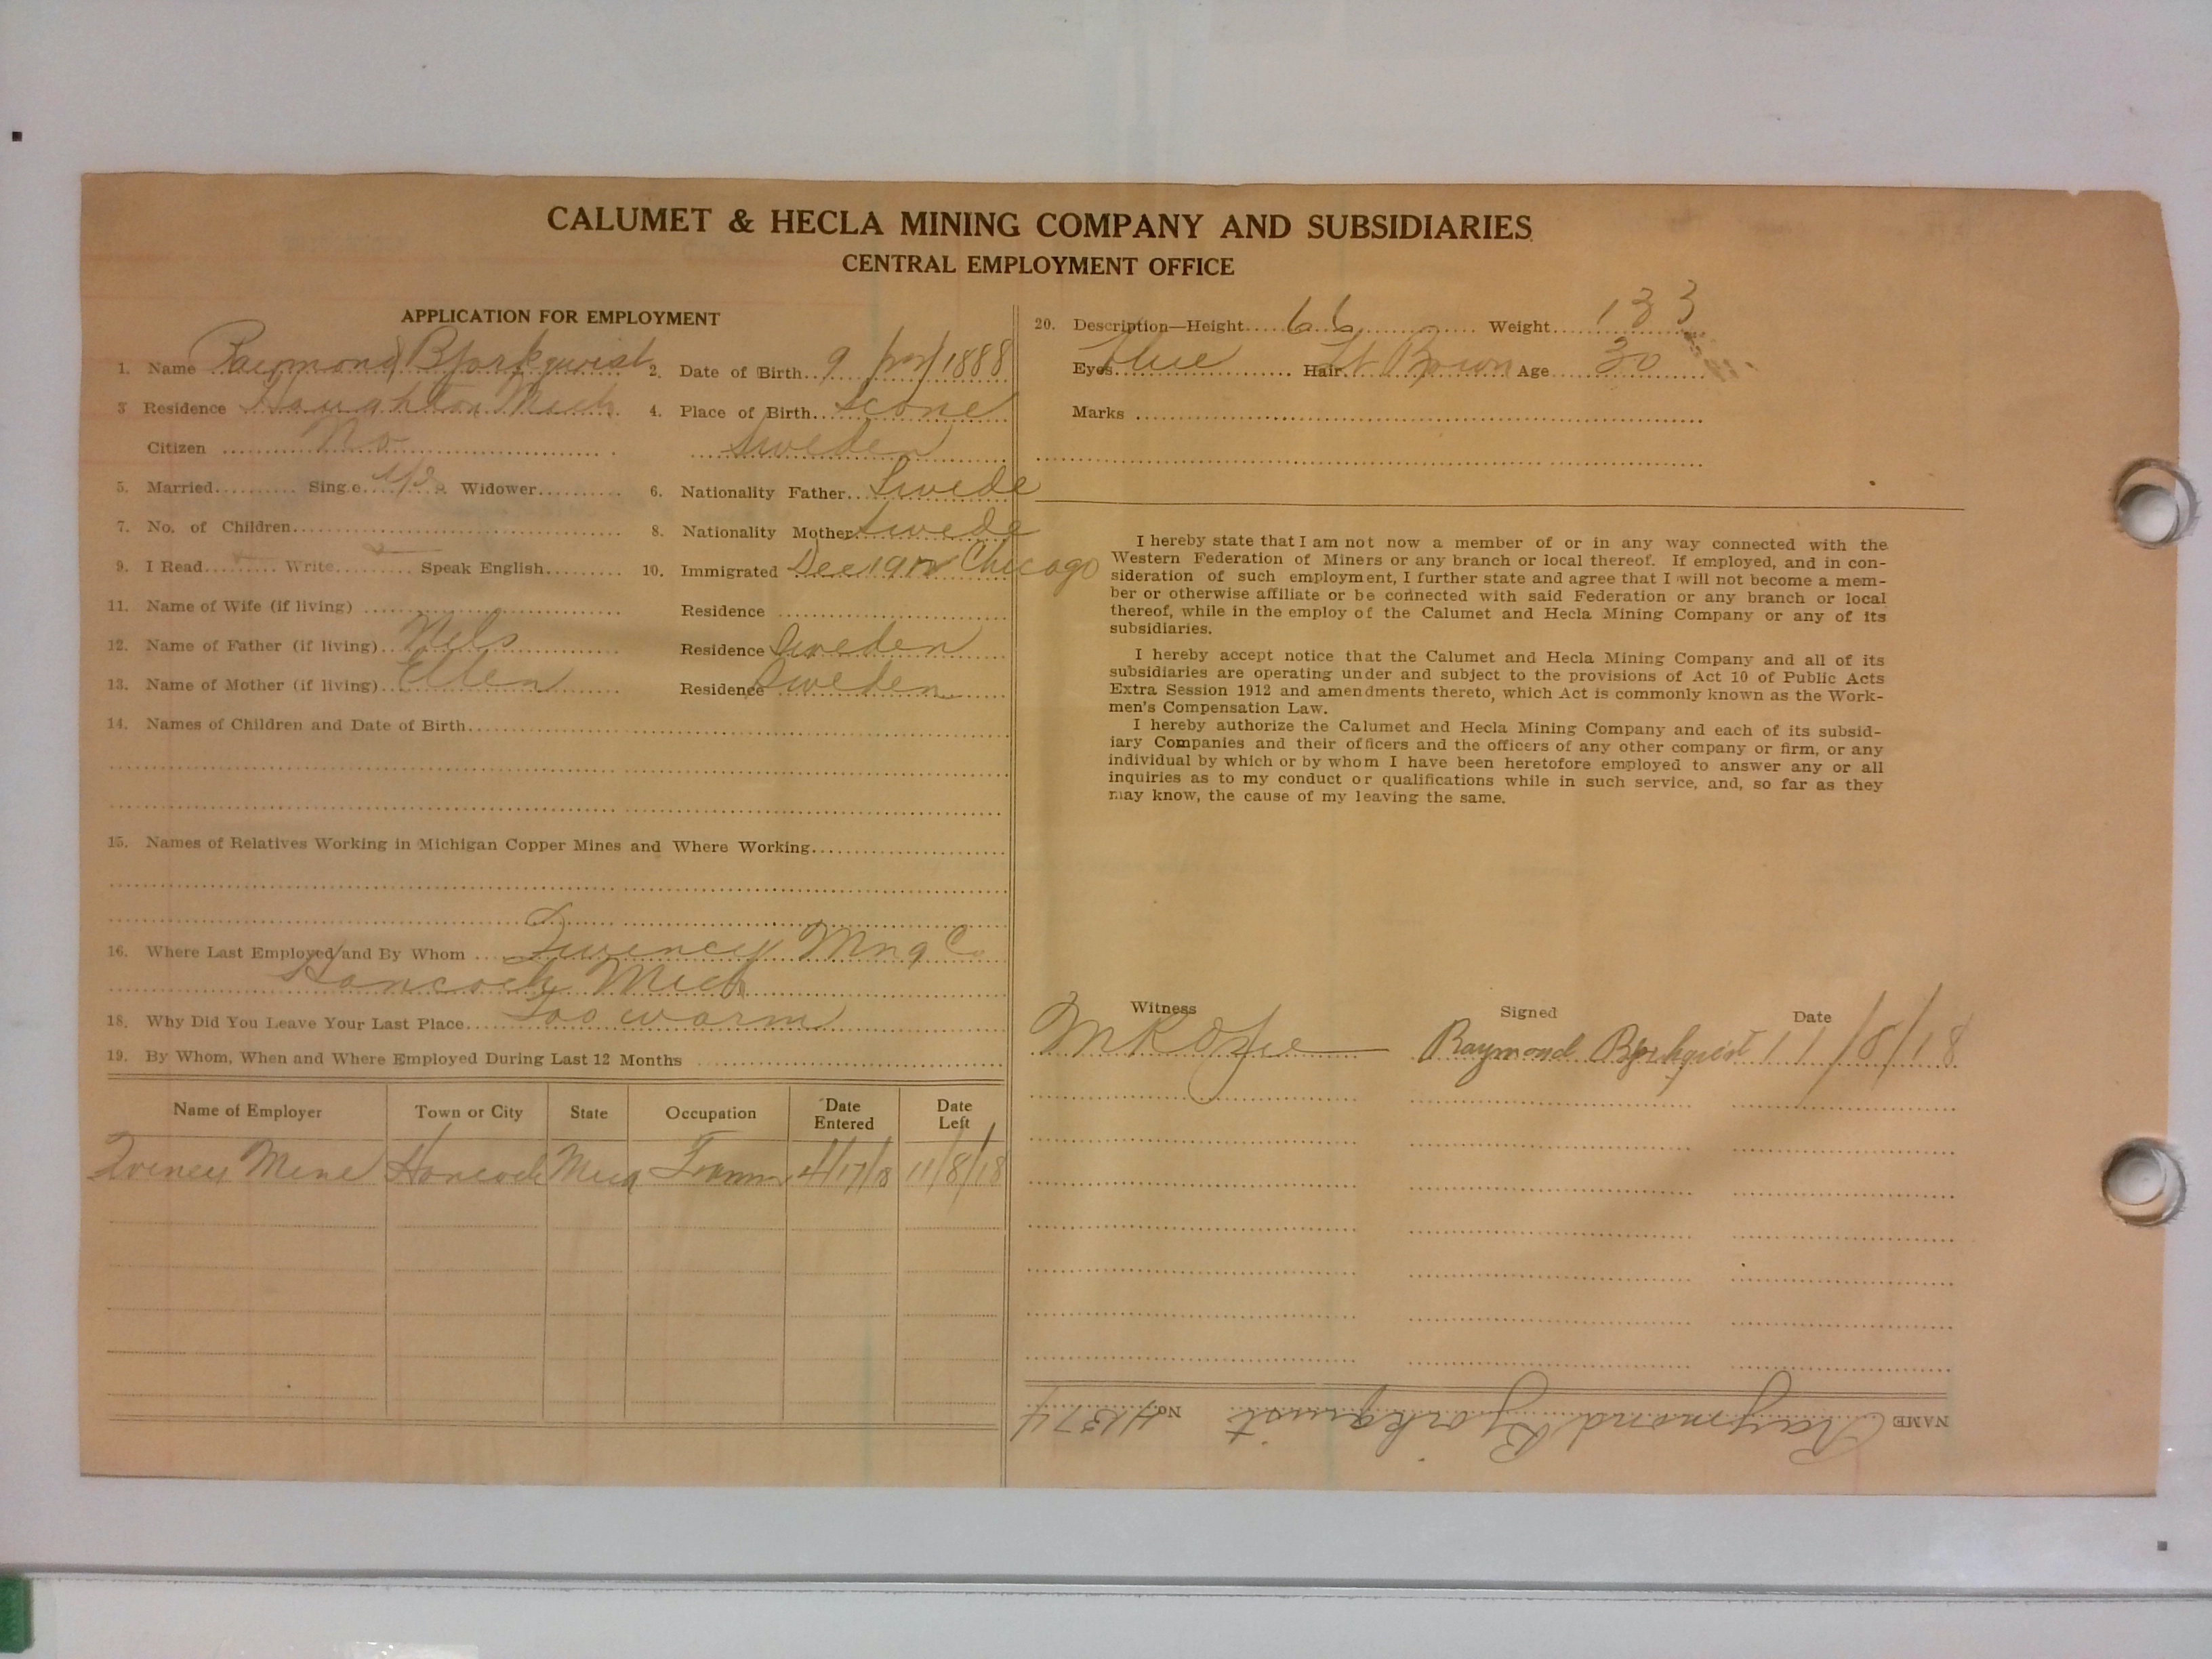 CALUMET & HECLA MINING COMPANY AND SUBSIDIARIES
CENTRAL EMPLOYMENT OFFICE
APPLICATION FOR EMPLOYMENT
1. Name Raymond Bjorkquist 2. Date of Birth 9 1888
3 Residence Houghton Mich 4. Place of Birth Scone
Citizen No Sweden
5. Married Single yes Widower 6. Nationality Father Swede
7. No. of Children 8. Nationality Mother Swede
9. I Read Write Speak English 10. Immigrated Dec Chicago
11. Name of Wife (if living) Residence
12. Name of Father (if living) Nels Residence Sweden
13. Name of Mother (if living) Ellen Residence Sweden
14. Names of Children and Date of Birth
15. Names of Relatives Working in Michigan Copper Mines and Where Working
16. Where Last Employed and By Whom Quincy Mng Co
Hancock Mich
18. Why Did You Leave Your Last Place Too warm
19. By Whom, When and Where Employed During Last 12 Months
Name of Employer Town or City State Occupation Date Entered Date Left
Quincy Mine Hancock Mich 4/17/18 11/8/18
20. Description—Height 66 Weight 133
Eyes blue Hair Lt Brown Age 30
Marks
I hereby state that I am not now a member of or in any way connected with the
Western Federation of Miners or any branch or local thereof. If employed, and in con-
sideration of such employment, I further state and agree that I will not become a mem-
ber or otherwise affiliate or be connected with said Federation or any branch or local
thereof, while in the employ of the Calumet and Hecla Mining Company or any of its
subsidiaries.
I hereby accept notice that the Calumet and Hecla Mining Company and all of its
subsidiaries are operating under and subject to the provisions of Act 10 of Public Acts
Extra Session 1912 and amendments thereto, which Act is commonly known as the Work-
men's Compensation Law.
I hereby authorize the Calumet and Hecla Mining Company and each of its subsid-
iary Companies and their officers and the officers of any other company or firm, or any
individual by which or by whom I have been heretofore employed to answer any or all
inquiries as to my conduct or qualifications while in such service, and, so far as they
may know, the cause of my leaving the same.
Witness Signed Date
Raymond Bjorkquist 11/8/18
NAME Raymond Bjorkquist No.